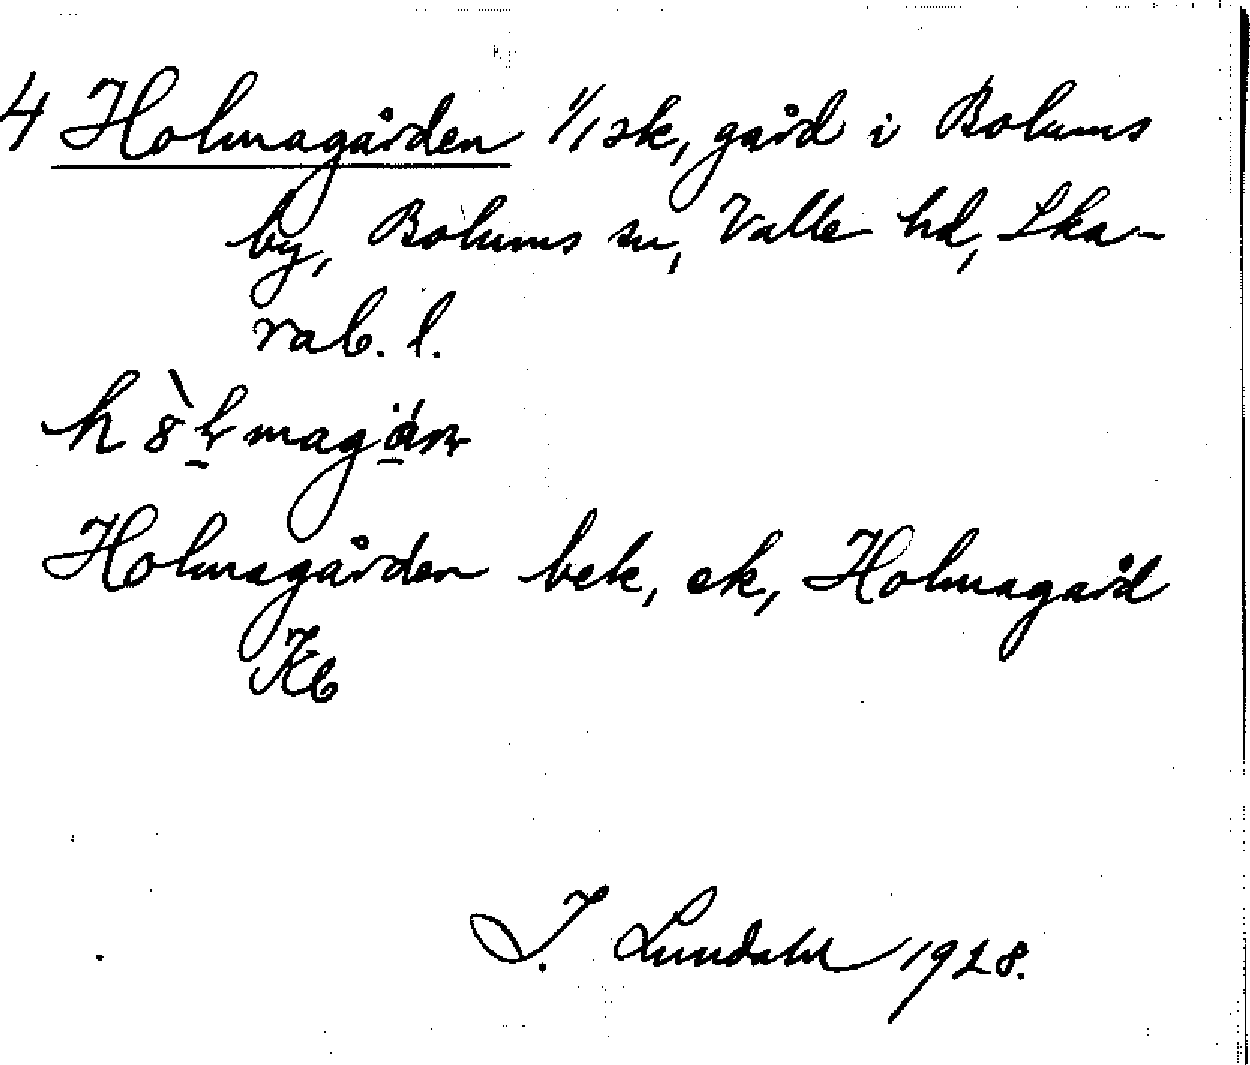 4 Holmagården 1/1 sk, gård i Bolums
by, Bolums sn, Valle hd, Ska-
rab. l.
Holmagården bek, ek, Holmagård
Kb
I. Lundahl 1928.